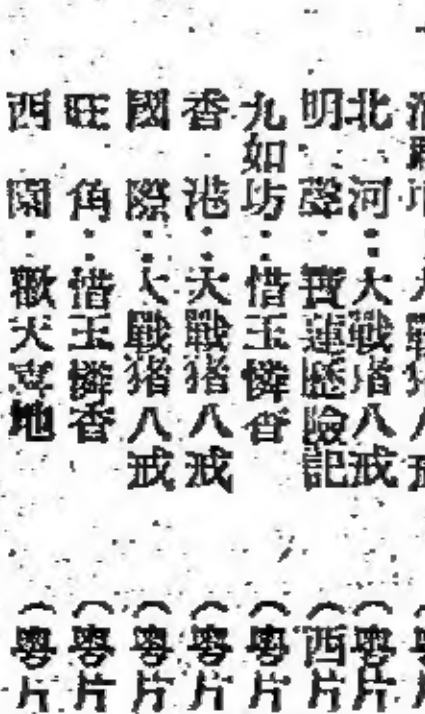 大戰豬八戒（粵片
北河：大戰豬八戒（粵片
明聲：寶蓮歷險記（西片
九如坊：惜玉憐香（粵片
香港：大戰豬八戒（粵片
國際：大戰豬八戒（粵片
旺角：惜玉憐香（粵片
西園：歡天喜地（粵片